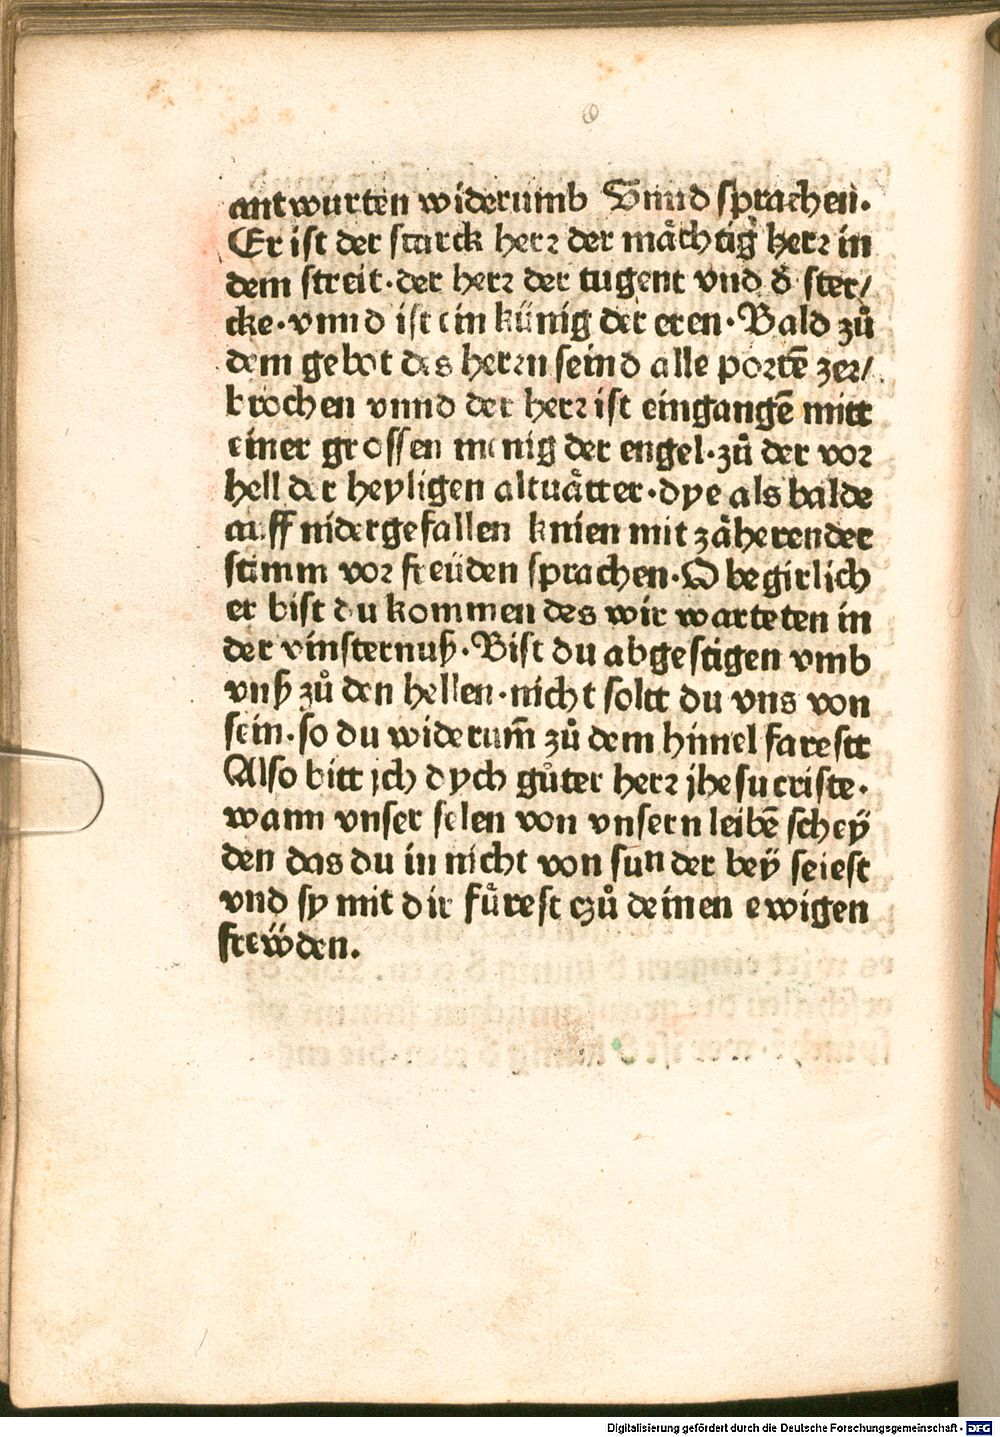 antwurten widerumb Vnnd sprachen.
Er ist der starck herꝛ der mächtig herꝛ in
dem streit·der herꝛ der tugent vnd ď ster/
cke·vnnd ist ein künig der eren·Bald zů
dem gebot des herꝛn seind alle poꝛtē zer/
brochen vnnd der herꝛ ist eingangē mitt
einer grossen menig der engel·zů der voꝛ
hell der heyligen altuåtter·dye als balde
auff nidergefallen knien mit zäherender
stimm voꝛ freüden sprachen·O begirlich
er bist du kommen des wir warteten in
der vinsternuß·Bist du abgestigen vmb
vnß zů den hellen·nicht soltt du vns von
sein·so du widerum̄ zů dem himel farestt
Also bitt jch dych gůter herꝛ jhesu criste·
wann vnser selen von vnsern leibē scheÿ
den das du in nicht von sunder beÿ seiest
vnd sy mit dir fürest czů deinen ewigen
frewden.
Digitalisierung gefördert durch die Deutsche Forschungsgemeinschaft - DFG